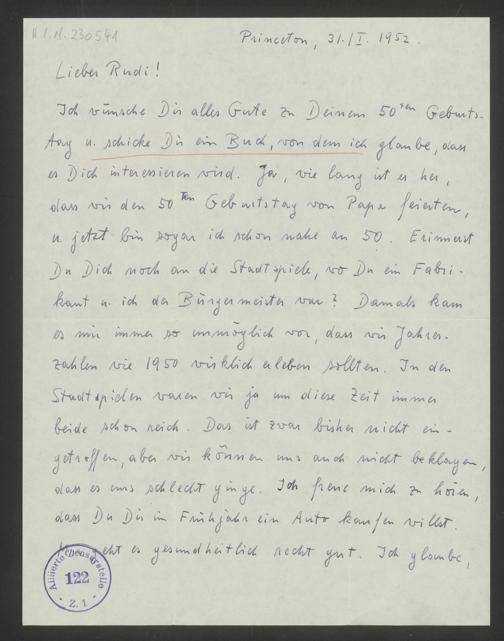 H.I.N. 230541
Princeton, 31./I. 1952.
Lieber Rudi!
Ich wünsche Dir alles Gute zu Deinem 50ten Geburts-
tag u. schicke Dir ein Buch, von dem ich glaube, dass
es Dich interessieren wird. Ja, wie lang ist es her,
dass wir den 50ten Geburtstag von Papa feierten,
u. jetzt bin sogar ich schon nahe an 50. Erinnerst
Du Dich noch an die Stadtspiele, wo Du ein Fabri-
kant u. ich der Bürgermeister war? Damals kam
es mir immer so unmöglich vor, dass wir Jahres-
zahlen wie 1950 wirklich erleben sollten. In den
Stadtspielen waren wir ja um diese Zeit immer
beide schon reich. Das ist zwar bisher nicht ein-
getroffen, aber wir können uns auch nicht beklagen,
dass es uns schlecht ginge. Ich freue mich zu hören,
dass Du Dir im Frühjahr ein Auto kaufen willst.
geht es gesundheitlich recht gut. Ich glaube,
Alliierte Zensurstelle
122
Z. 1